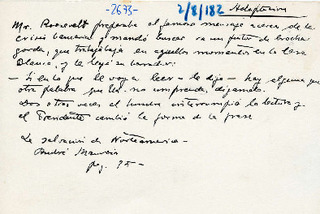 -2693-
2/8/182
Adaptarse
Mr. Roosevelt preparaba el famoso mensaje acerca de la
crisis bancaria y mandó buscar a un pintor de brocha
gorda, que trabajaba en aquellos momentos en la Casa
Blanca, y le leyó su borrador:
— Si en lo que le voy a leer — le dijo — hay alguna que
otra palabra que Ud. no comprenda, dígamelo.
Dos o tres veces el hombre interrumpió la lectura y
el Presidente cambió la forma de la frase
La salvación de Norteamérica —
André Maurois
pág. 95 —